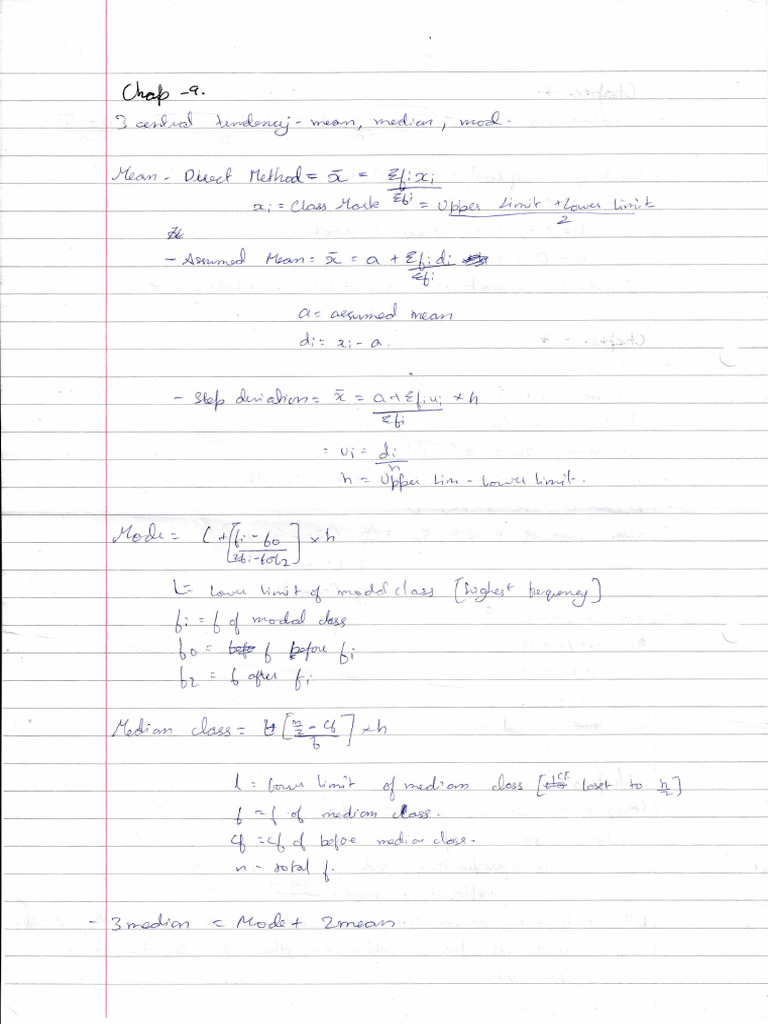 Chap - 9.
3 central tendency - mean, median, mod.
Mean - Direct Method = x̄ = Σfixi / Σfi
xi = Class Mark = Upper Limit + Lower limit / 2
- Assumed Mean = x̄ = a + Σfidi / Σfi
a = assumed mean
di = xi - a.
- Step deviation = x̄ = a + Σfiui / Σfi × h
= ui = di / h
h = Upper Lim - Lower limit.
Mode = l + [fi - f0 / 2fi - f0f2] × h
L = lower limit of modal class [highest frequency]
fi = f of modal class
f0 = f before fi
f2 = f after fi
Median class = l + [n/2 - cf / f] × h
l = lower limit of median class [CF closet to n/2]
f = f of median class.
cf = cf of before median class.
n - total f.
- 3 median = Mode + 2 mean.